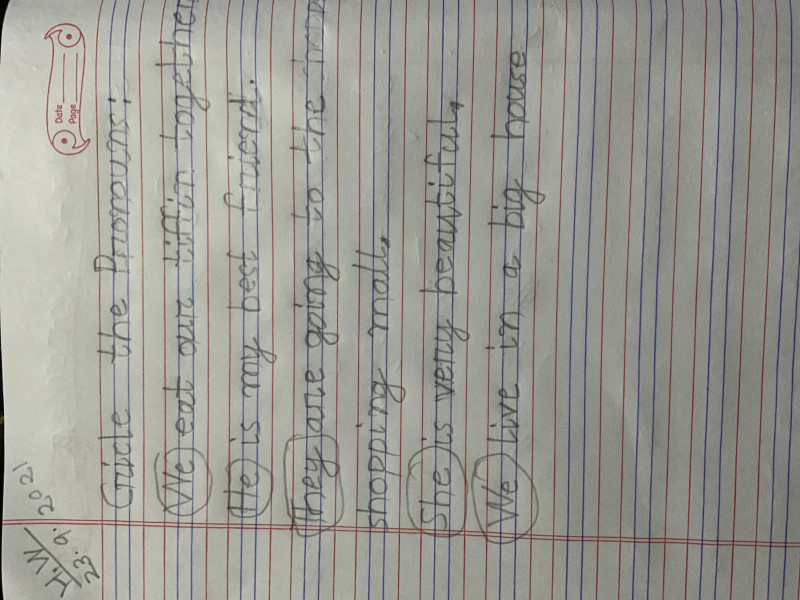 H.W
23.9.2021
Date
Page
Circle the Pronouns:
We eat our tiffin together
He is my best friend.
They are going to the
shopping mall.
She is very beautiful.
We live in a big house